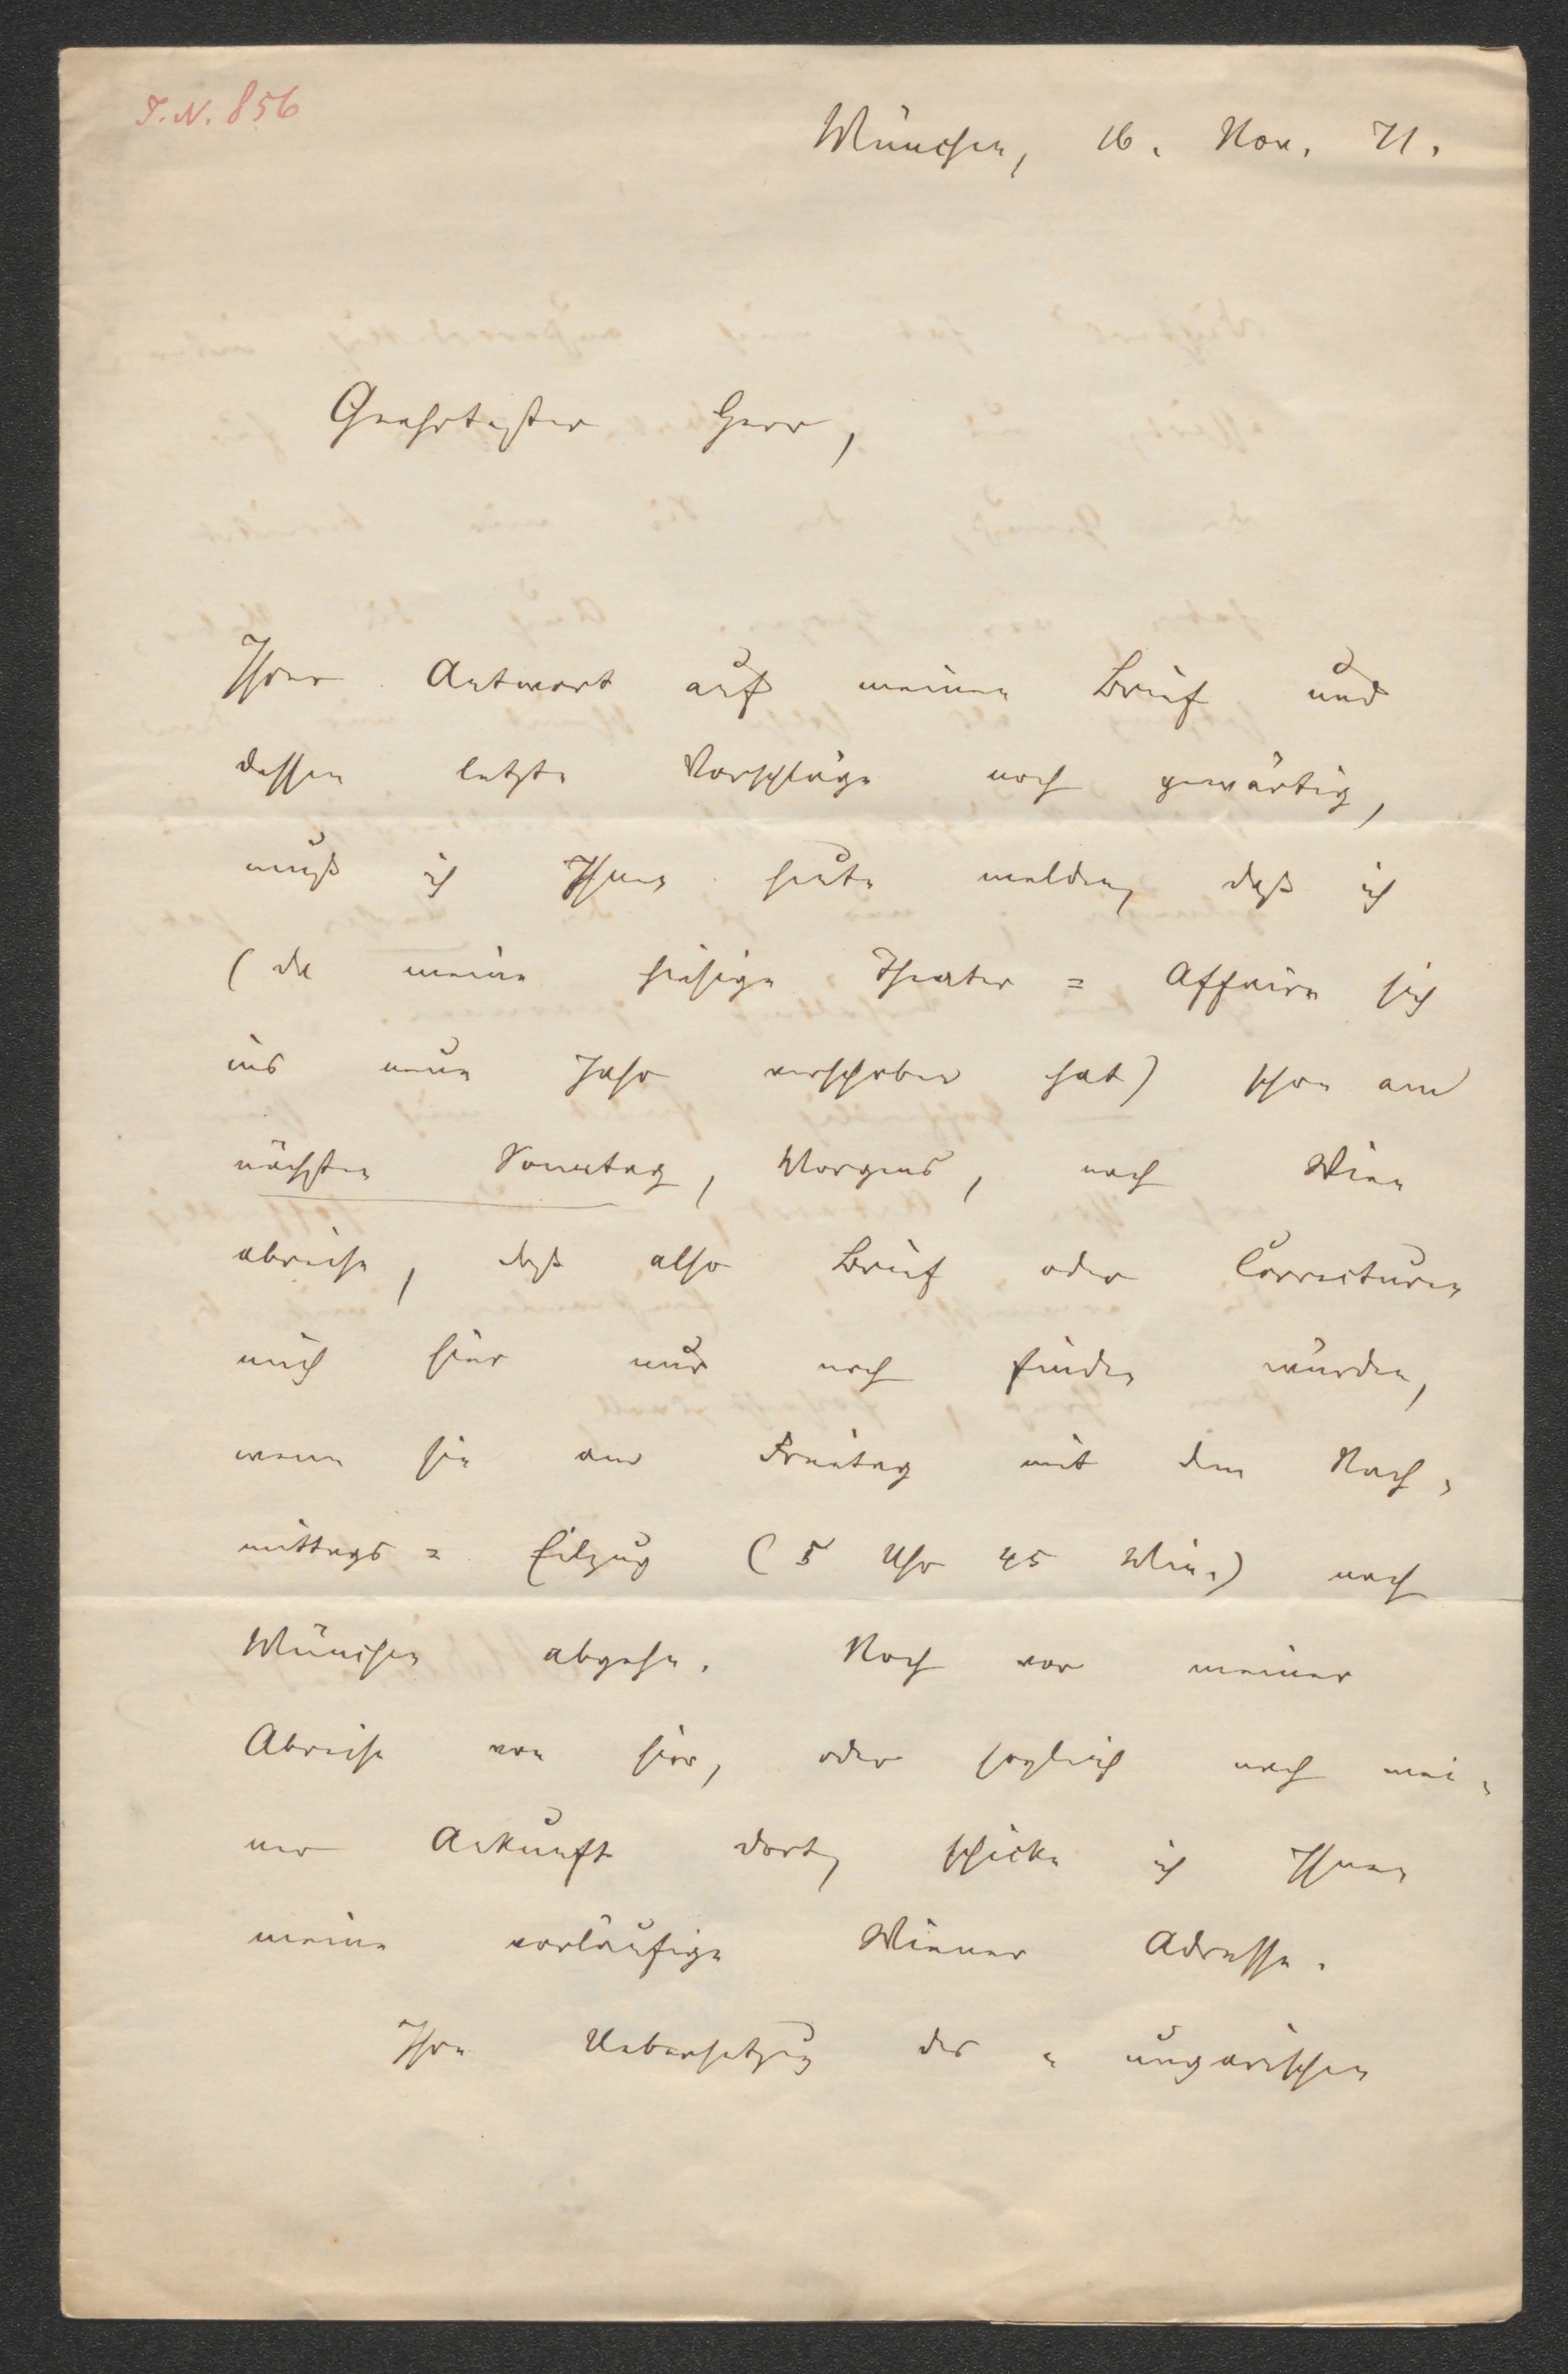 I.N. 856
München, 16. Nov. 71.
Geehrtester Herr,
Ihrer Antwort auf meinen Brief und
dessen letzte Vorschläge noch gewärtig,
muß ich Ihnen heute melden, daß ich
(da meine hiesige Theater=Affaire sich
ins neue Jahr verschoben hat) schon am
nächsten Sonntag, Morgens, nach Wien
abreise, daß also Brief oder Correcturen
mich hier nur noch finden würden,
wenn sie am Freitag mit dem Nach-
mittags=Eilzug (5 Uhr 45 Min.) nach
München abgehn. Noch vor meiner
Abreise von hier, oder sogleich nach mei-
ner Ankunft dort, schicke ich Ihnen
meine vorläufige Wiener Adresse.
Ihre Uebersetzung der „ungarischen